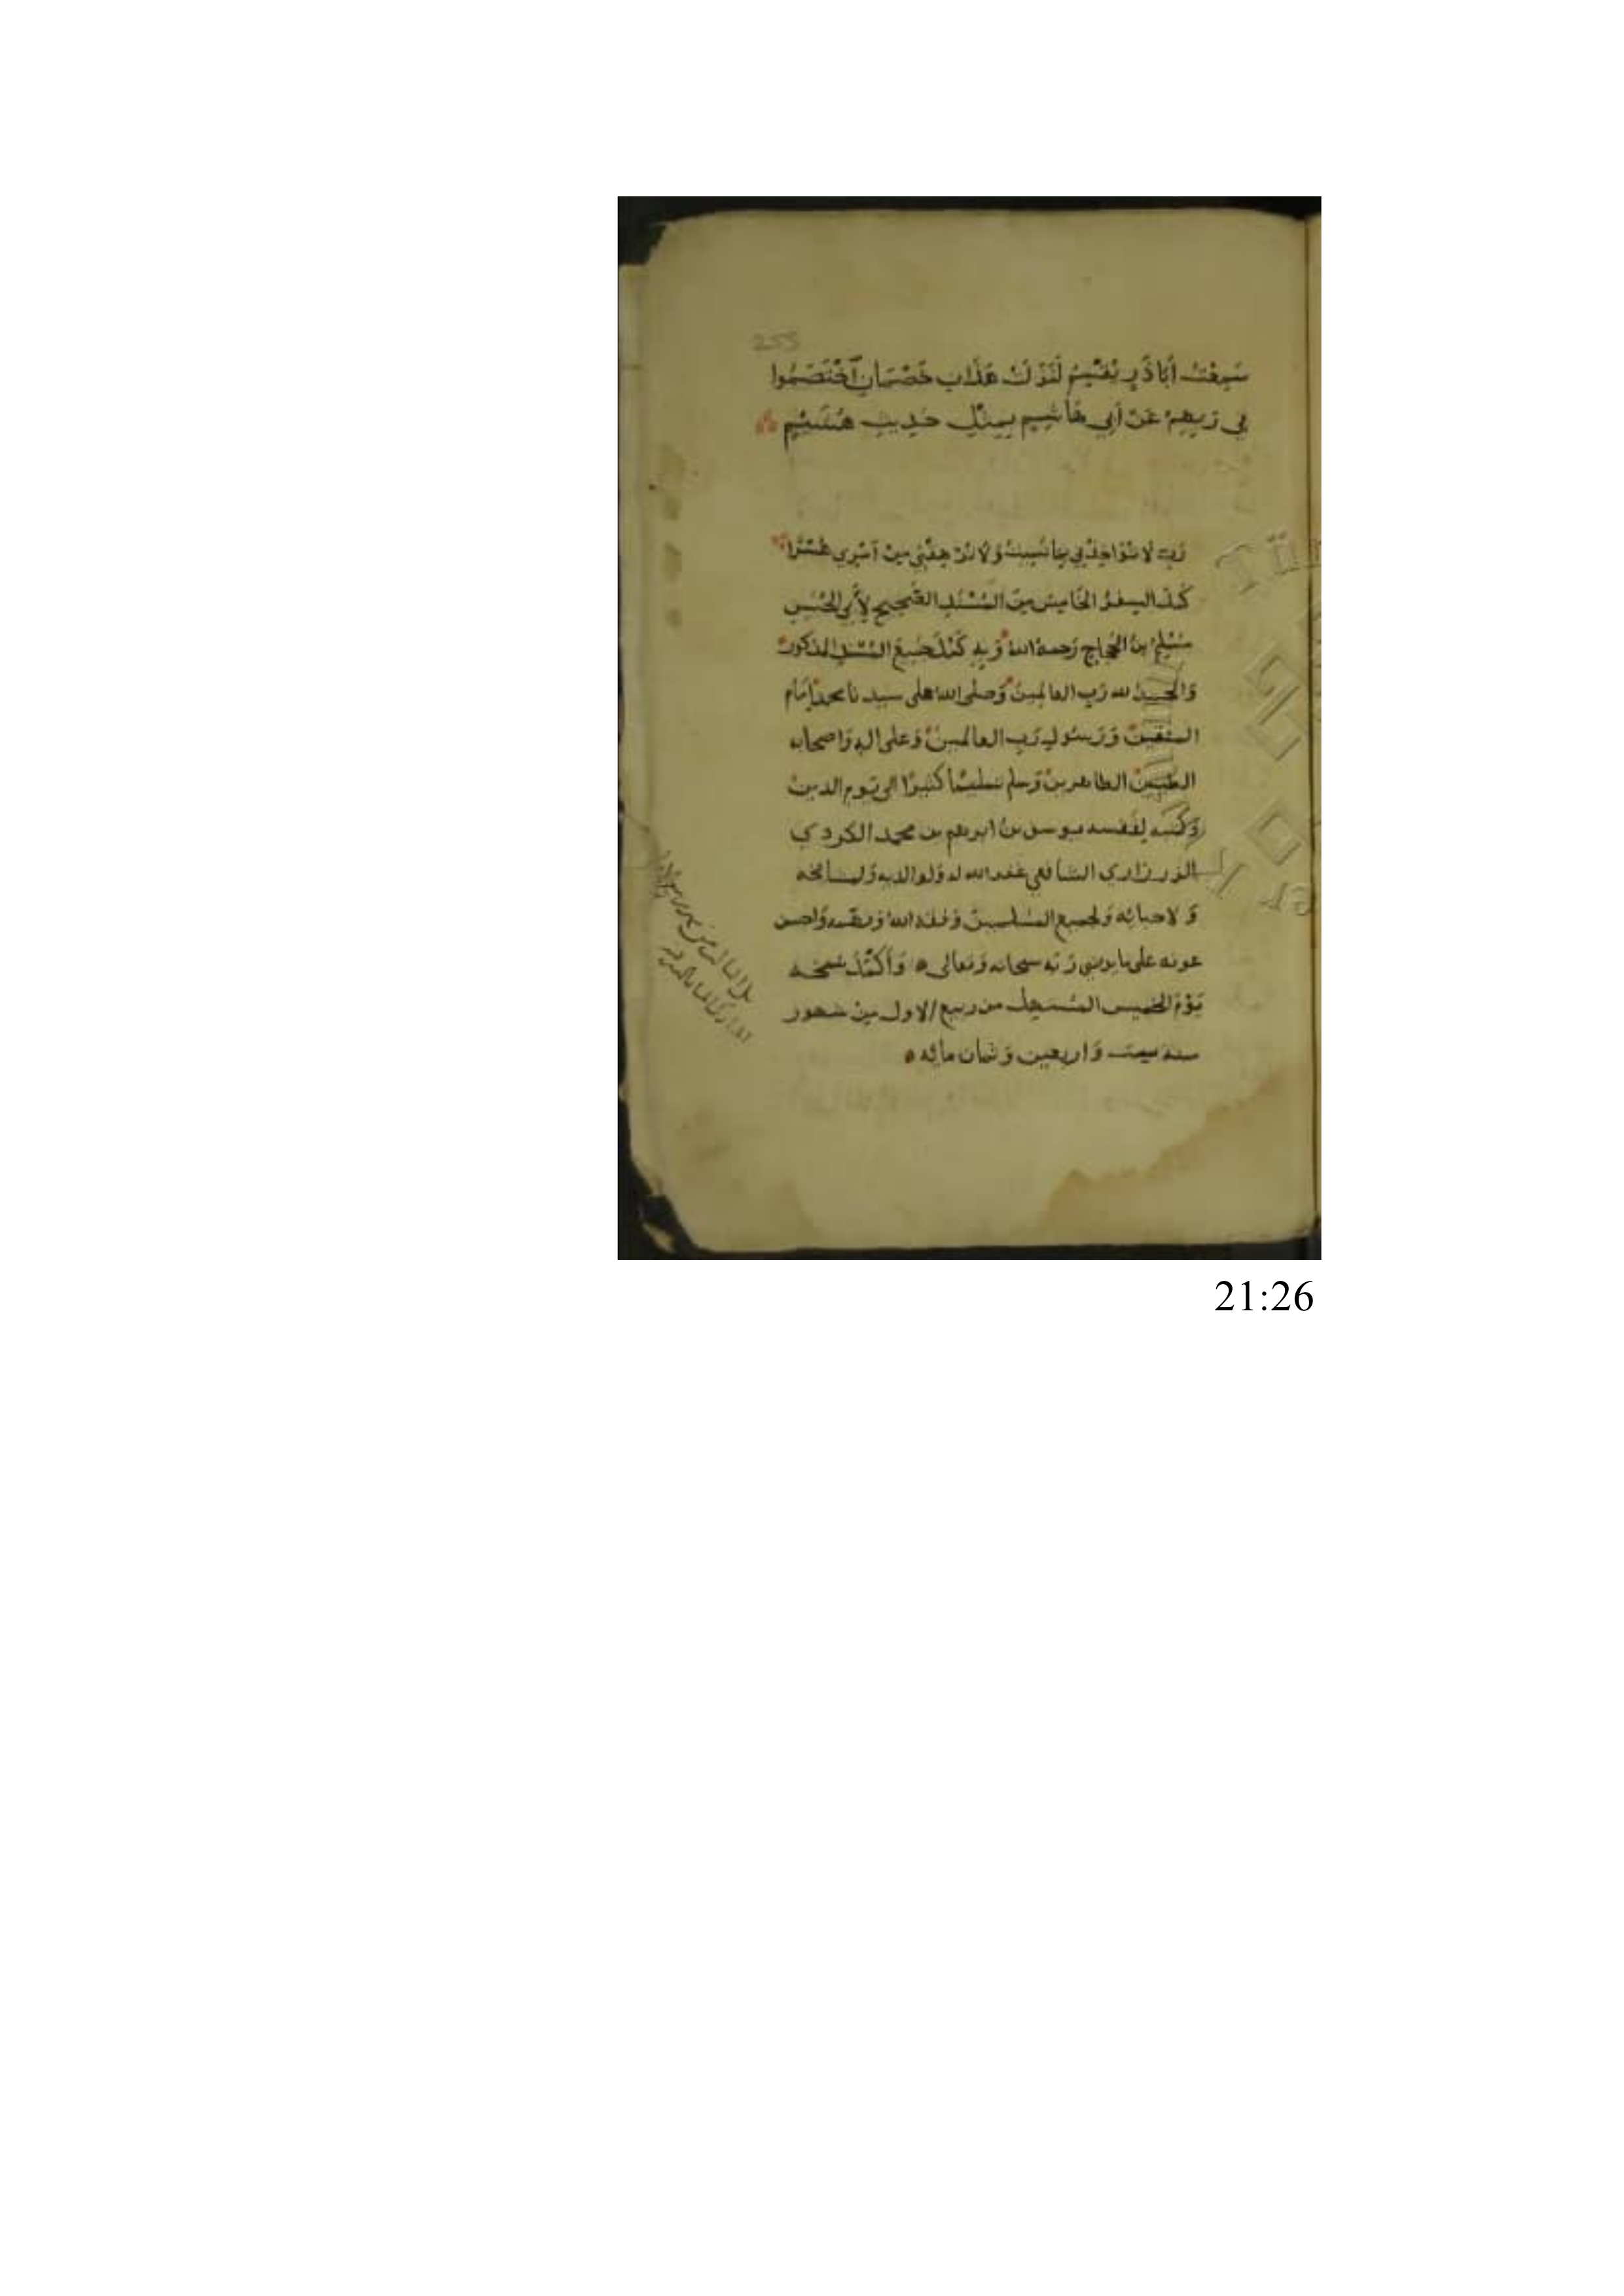 255
سَمِعْتُ أَبَا ذَرٍّ يُقْسِمُ لَنَزَلَتْ هَذَانِ خَصْمَانِ اخْتَصَمُوا
فِي رَبِّهِمْ عَنْ أَبِي هَاشِمٍ بِمِثْلِ حَدِيثِ هُشَيْمٍ
رَبِّ لَا تُؤَاخِذْنِي بِمَا نَسِيتُ وَلَا تُرْهِقْنِي مِنْ أَمْرِي عُسْرًا
كمل السفر الخامس من المسند الصحيح لأبي الحسين
مسلم بن الحجاج رحمه الله وبه كمل جميع المسند المذكور
والحمد لله رب العالمين وصلى الله على سيدنا محمد إمام
المتقين ورسول رب العالمين وعلى اله واصحابه
الطيبين الطاهرين وسلم تسليما كثيرا الى يوم الدين
وكتبه لنفسه يوسف بن ابرهيم بن محمد الكردي
الشافعي غفر الله له ولوالديه ولمشائخه
ولاحبائه ولجميع المسلمين وفقه الله واحسن
عونه على ما يرضي ربه سبحانه وتعالى وأكمل نسخه
يوم الخميس المستهل من ربيع الاول من شهور
سنه ست واربعين وثمان مائه
21:26